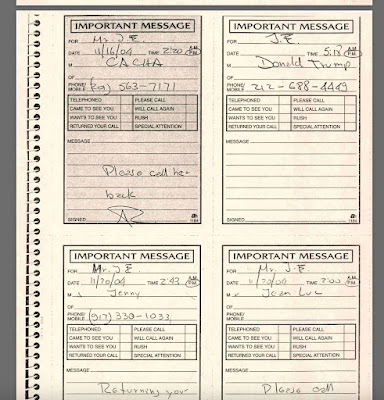 IMPORTANT MESSAGE
FOR Mr. J.E.
DATE 11/16/04 TIME 2:20 A.M. P.M.
M CACHA
OF
PHONE/MOBILE 563-7171
TELEPHONED PLEASE CALL
CAME TO SEE YOU WILL CALL AGAIN
WANTS TO SEE YOU RUSH
RETURNED YOUR CALL SPECIAL ATTENTION
MESSAGE
Please call her
back
SIGNED
1184
IMPORTANT MESSAGE
FOR J.E.
DATE TIME 5:18 A.M. P.M.
M Donald Trump
OF
PHONE/MOBILE 212-688-4449
TELEPHONED PLEASE CALL
CAME TO SEE YOU WILL CALL AGAIN
WANTS TO SEE YOU RUSH
RETURNED YOUR CALL SPECIAL ATTENTION
MESSAGE
SIGNED
1184
IMPORTANT MESSAGE
FOR Mr. J.E.
DATE 11/20/04 TIME 2:43 A.M. P.M.
M Jenny
OF
PHONE/MOBILE (917) 330-1033
TELEPHONED PLEASE CALL
CAME TO SEE YOU WILL CALL AGAIN
WANTS TO SEE YOU RUSH
RETURNED YOUR CALL SPECIAL ATTENTION
MESSAGE
Returning your
IMPORTANT MESSAGE
FOR Mr. J.E.
DATE 11/20/04 TIME 2:00 A.M. P.M.
M Jean Luc
OF
PHONE/MOBILE
TELEPHONED PLEASE CALL
CAME TO SEE YOU WILL CALL AGAIN
WANTS TO SEE YOU RUSH
RETURNED YOUR CALL SPECIAL ATTENTION
MESSAGE
Please call